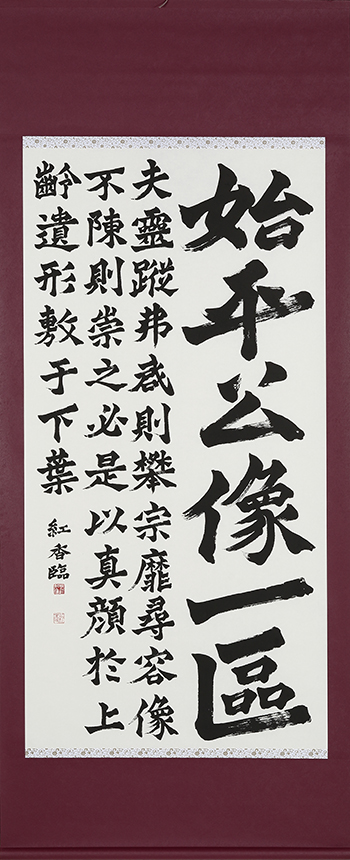 始平公像一區
夫靈蹤弗啓則攀宗靡尋容像
不陳則崇之必是以真顔於上
齡遺形敷于下葉
紅香臨